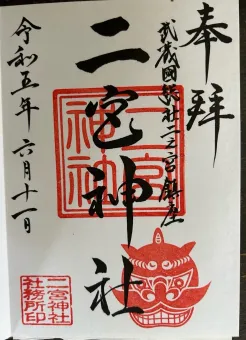 奉拝
武蔵國総社二之宮鎮座
二宮神社
令和五年 六月十一日
二宮神社
二宮神社
社務所印